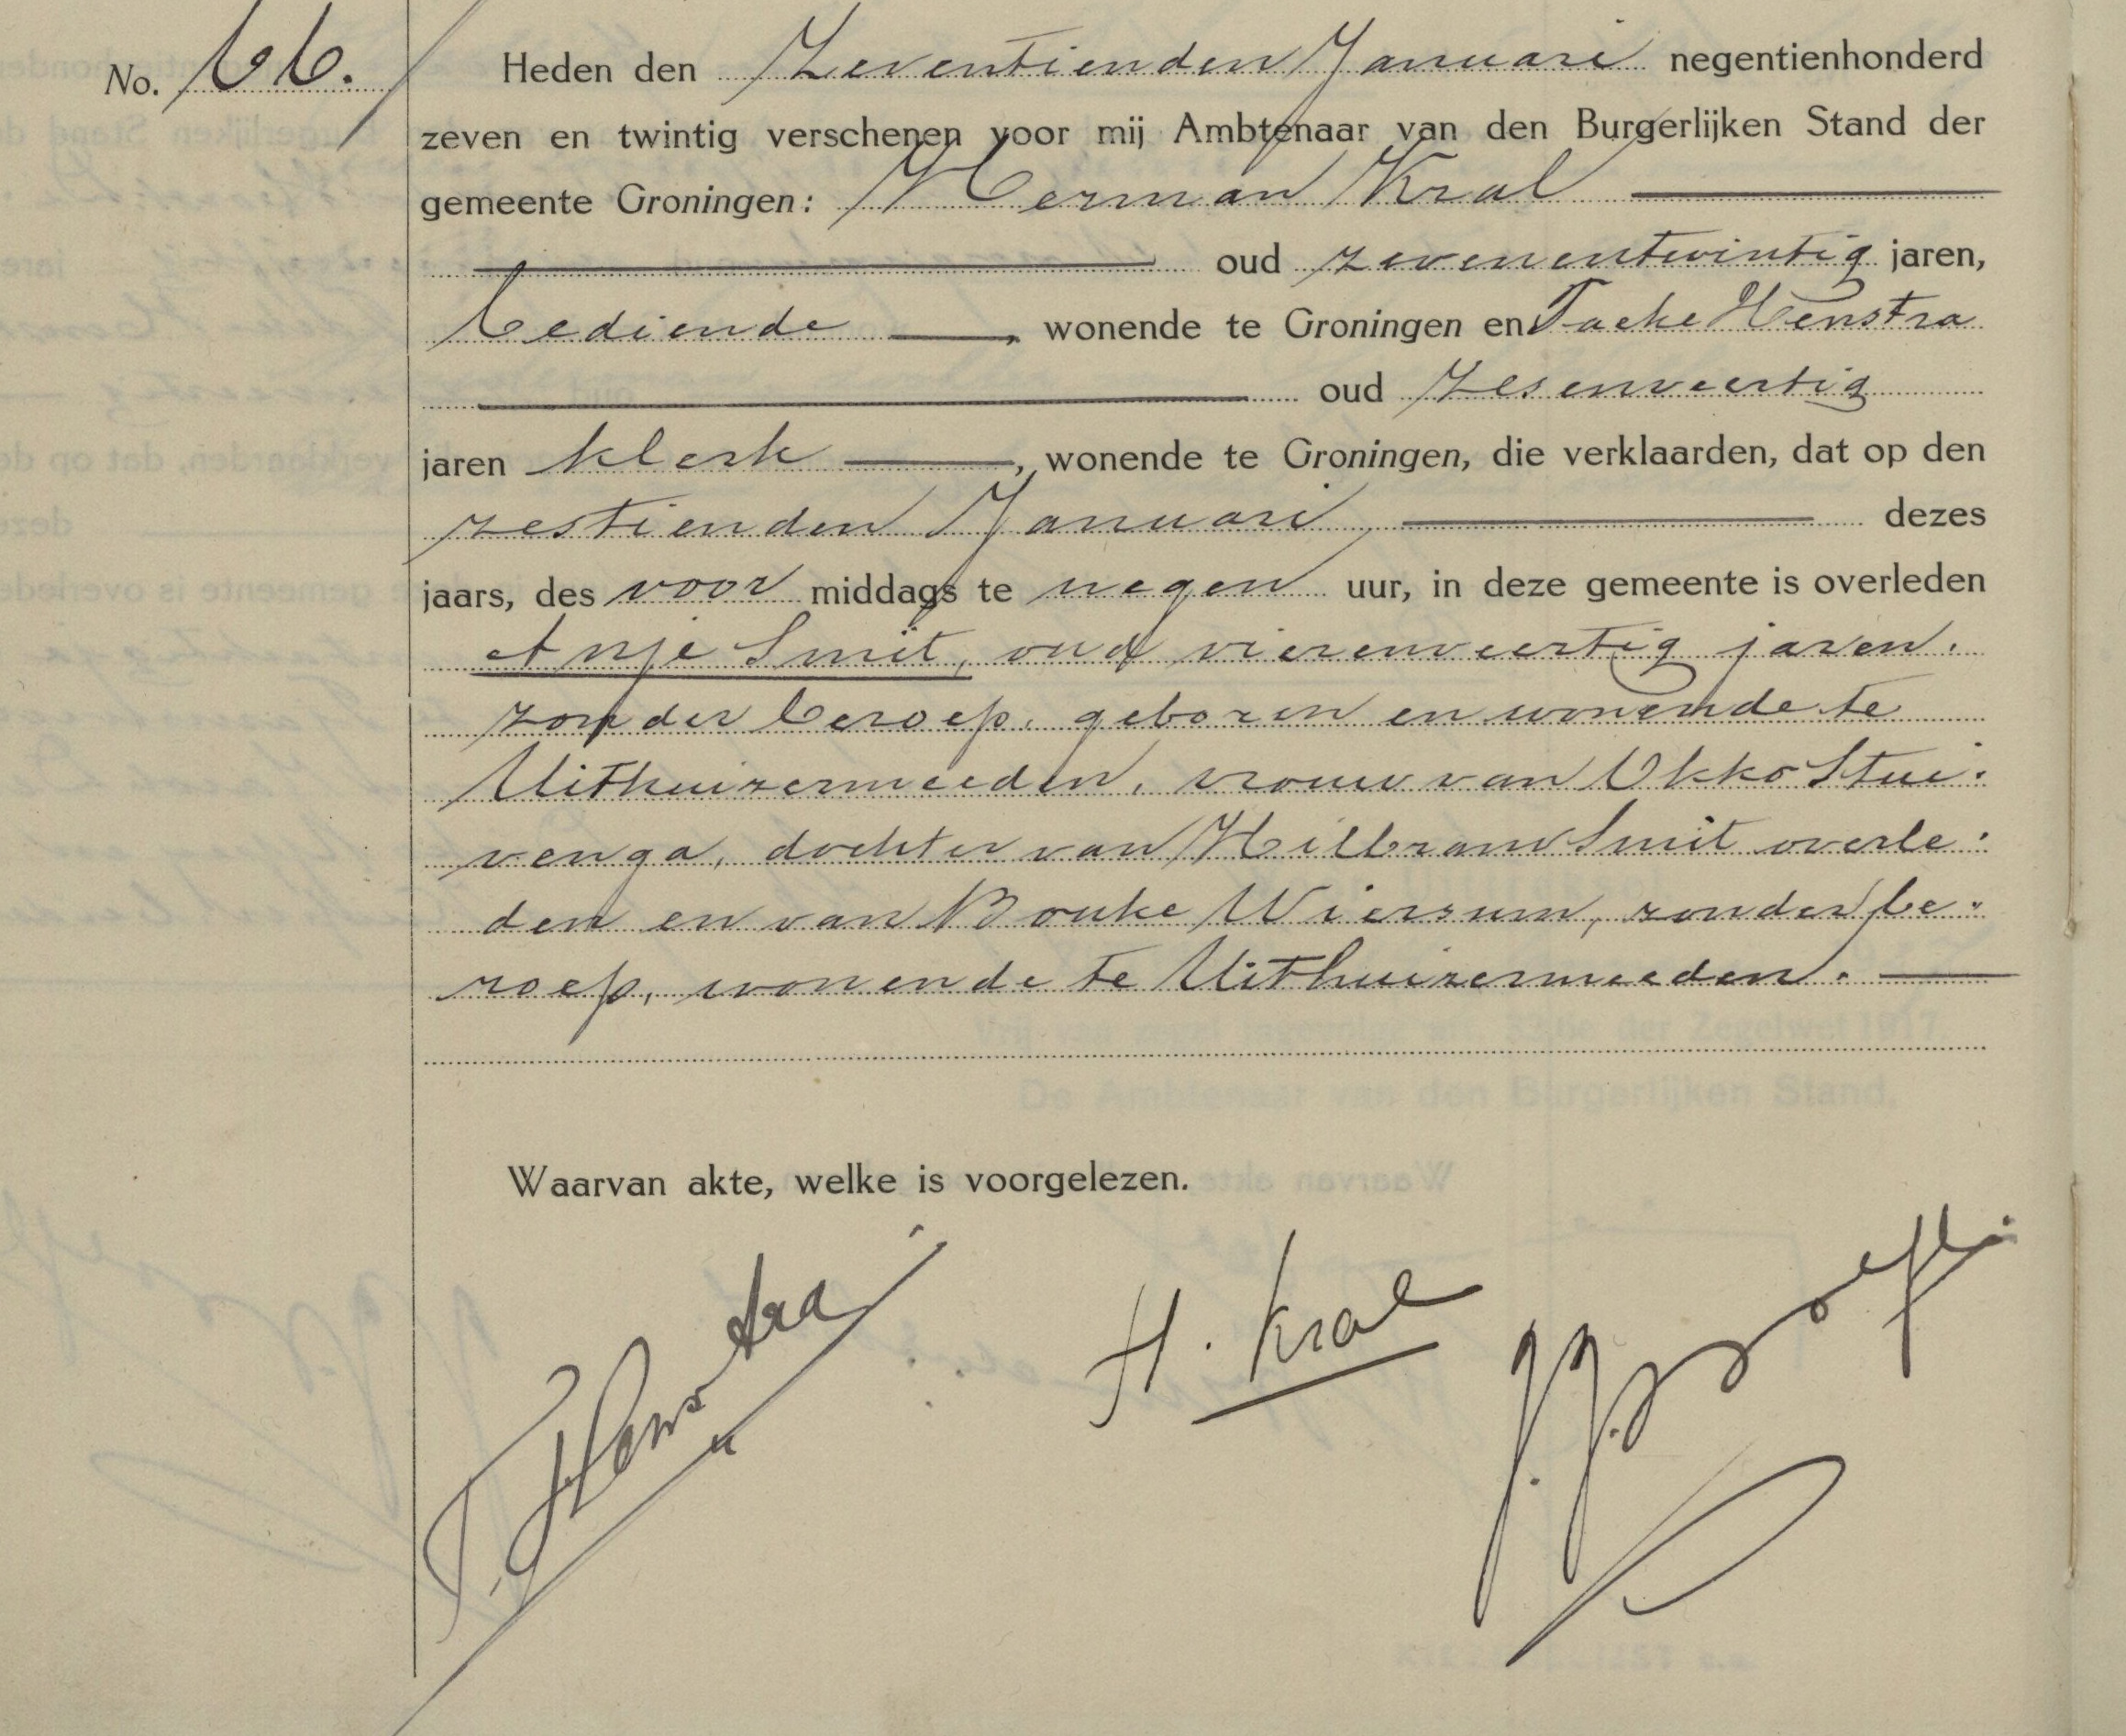 No. 66.
Heden den Zeventienden Januari negentienhonderd
zeven en twintig verschenen voor mij Ambtenaar van den Burgerlijken Stand der
gemeente Groningen: Herman Kral
oud zevenentwintig jaren,
bediende, wonende te Groningen en Taeke Henstra
oud zesenveertig
jaren klerk, wonende te Groningen, die verklaarden, dat op den
zestienden Januari dezes
jaars, des voor middags te negen uur, in deze gemeente is overleden
Anje Smit, oud vierenveertig jaren.
zonder beroep, geboren en wonende te
Uithuizermeeden, vrouw van Okko Stui:
venga, dochter van Hilbrand Smit overle:
den en van Bouke Wiersum, zonder be:
roep, wonende te Uithuizermeeden.
Waarvan akte, welke is voorgelezen.
T. Henstra
H. Kral